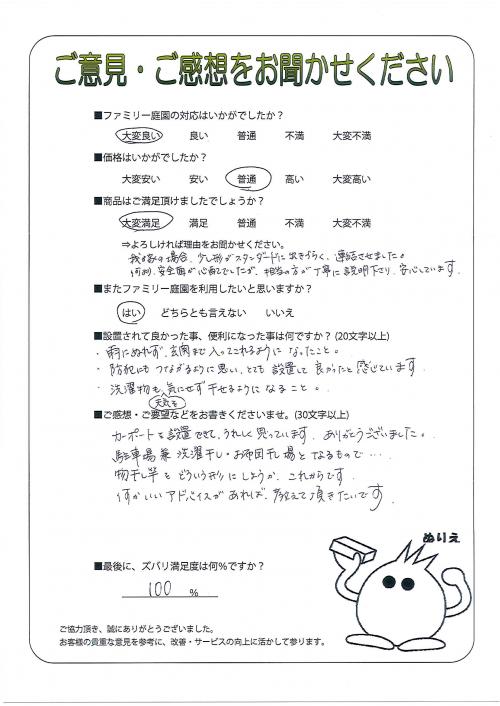 ご意見・ご感想をお聞かせください
■ファミリー庭園の対応はいかがでしたか？
大変良い 良い 普通 不満 大変不満
■価格はいかがでしたか？
大変安い 安い 普通 高い 大変高い
■商品はご満足頂けましたでしょうか？
大変満足 満足 普通 不満 大変不満
⇒よろしければ理由をお聞かせください。
我が家の場合、少し形がスタンダードに出来づらく、連結させました。
何分、安全面が心配でしたが、担当の方が丁寧に説明下さり、安心しています。
■またファミリー庭園を利用したいと思いますか？
はい どちらとも言えない いいえ
■設置されて良かった事、便利になった事は何ですか？(20文字以上)
・雨にぬれず、玄関まで入ってこれるようになったこと。
・防犯にもつながるように思い、とても設置して良かったと感じています
・洗濯物も、気にせず干せるようになること。
天気を
■ご感想・ご要望などをお書きくださいませ。(30文字以上)
カーポートを設置できて、うれしく思っています。ありがとうございました。
駐車場兼洗濯干し・お布団干し場となるもので…、
物干し竿をどういう形にしようか、これからです。
何かいいアドバイスがあれば、教えて頂きたいです。
ぬりえ
■最後に、ズバリ満足度は何％ですか？
100 ％
ご協力頂き、誠にありがとうございました。
お客様の貴重な意見を参考に、改善・サービスの向上に活かして参ります。